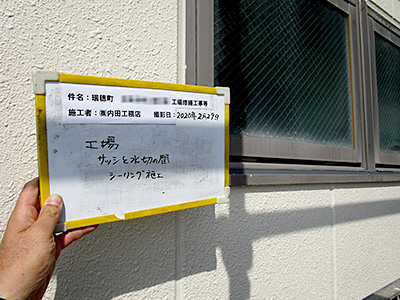 件名：瑞穂町 工場修繕工事等
施工者：㈱内田工務店 撮影日：2020年2月29日
工場
サッシと水切の間
シーリング施工